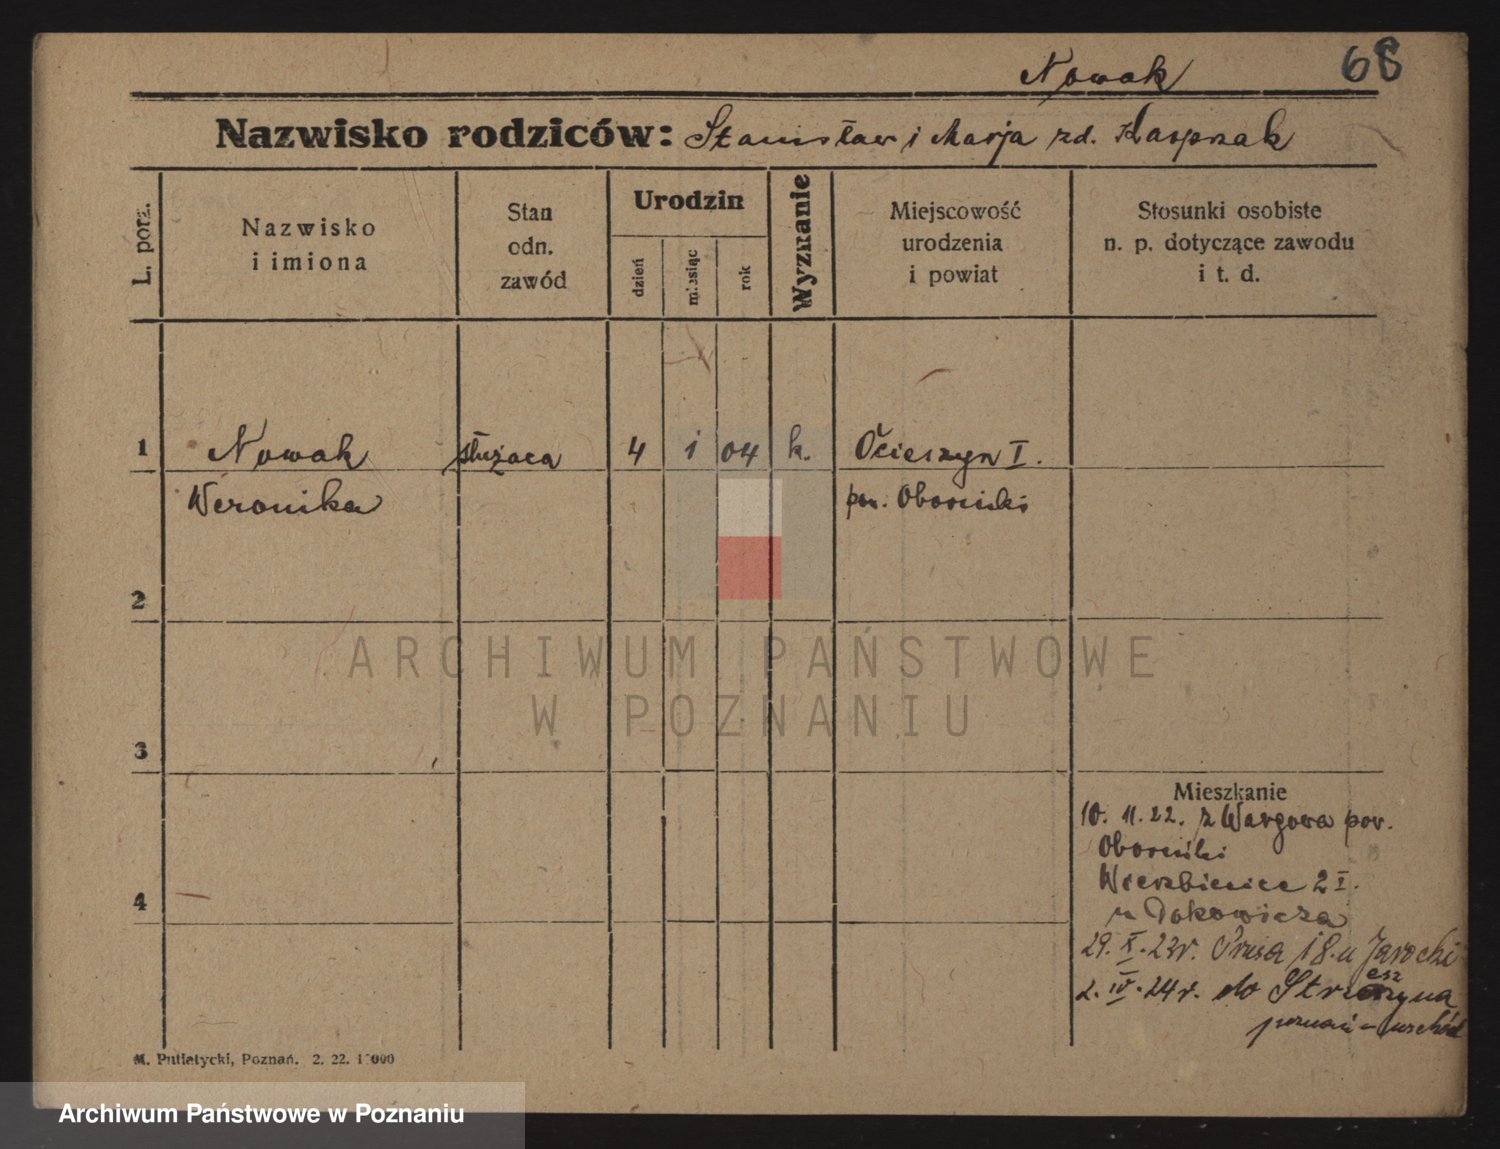 Nowak
68
Nazwisko rodziców: Stanisław i Marja zd. Kasprzak
L. porz.
Nazwisko
i imiona
Stan
odn.
zawód
Urodzin
dzień
miesiąc
rok
Wyznanie
Miejscowość
urodzenia
i powiat
Stosunki osobiste
n. p. dotyczące zawodu
i t. d.
1 Nowak służąca 4 1 04 k. Ocieszyn I.
Weronika pow. Oborniki
2
ARCHIWUM PAŃSTWOWE
W POZNANIU
3
Mieszkanie
10. 11. 22. z Wargowa pow.
Oborniki
Wierzbięcice 2 I.
4
u Dakowicza
29. X. 23r. Prusa 18. u Jarocki
2. IV. 24r. do Strzeszyna
esz
poznań-wschód
M. Putiatycki, Poznań. 2. 22. 1 000
Archiwum Państwowe w Poznaniu